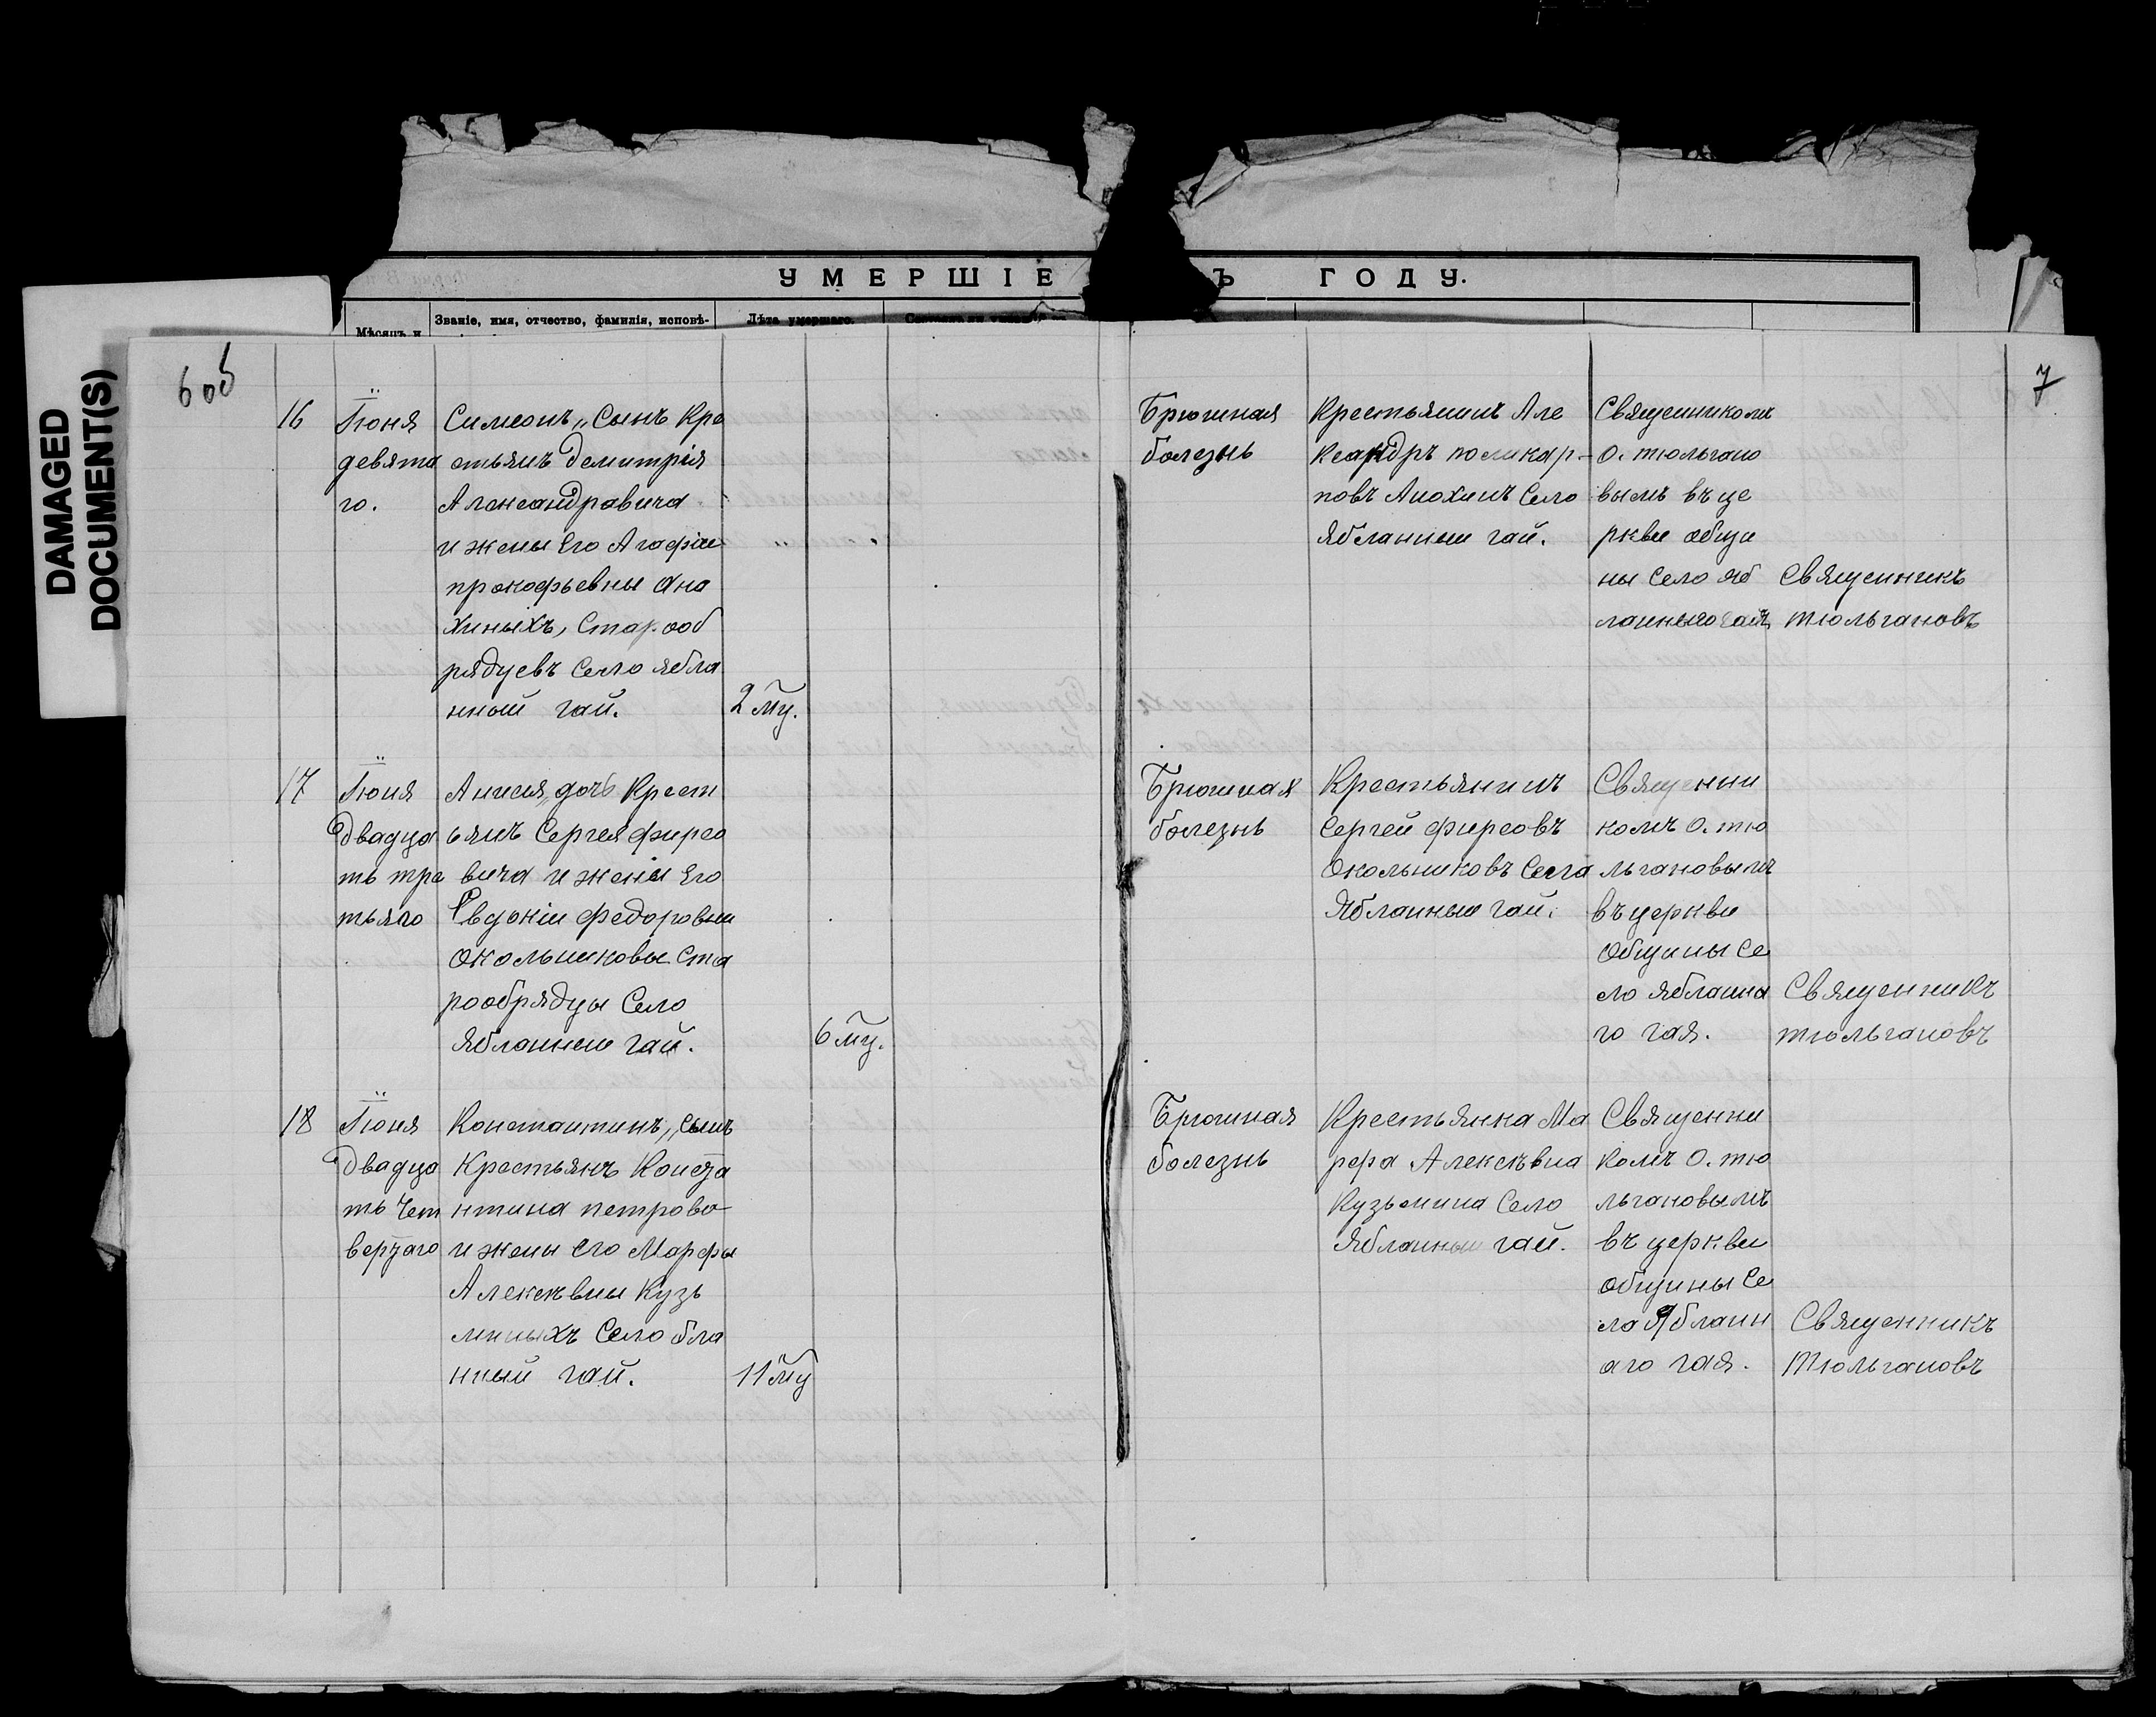 DAMAGED
DOCUMENT(S)
УМЕРШІЕ Ъ ГОДУ.
Мѣсяцъ и
Званіе, имя, отчество, фамилія, исповѣ-
Лѣта умершаго.
6 об
7
16
Іюня
девята
го.
Симеонъ „ Сынъ Кре
стьянъ Демитрія
Александравича
и жены Его Агафіи
прокофьевны Ана
хиныхъ, Старооб
рядцевъ Село ябла
нный гай.
2 мц.
Брюшная
болезнь
Крестьянинъ Але
ксандръ поликар-
повъ Анохинъ Село
Ябланный гай.
Священникомъ
О. тюльгано
вымъ въ це
ркви общи
ны Село яб
ланный гай
Священникъ
тюльгановъ
17
Іюня
Двадца
ть тре
тьяго
Анисия „ дочь Крест
ьянъ Сергея фирсо
вича и жены Его
Евдокіи федоровны
Окольниковы Ста
рообрядцы Село
Ябланный гай.
6 мц.
Брюшная
болезнь
Крестьянинъ
Сергей фирсовъ
Окольниковъ Села
Ябланный гай.
Священни
комъ О. тю
льгановымъ
въ церкви
Общины Се
ло Ябланна
го гая.
Священникъ
тюльгановъ
18
Іюня
Двадца
ть Чет
вертаго
Константинъ „ сынъ
Крестьянъ Конста
нтина петрово
и жены его Марфы
Алексѣвны Кузь
миныхъ Село бла
нный гай.
11 мц
Брюшная
болезнь
Крестьянка Ма
рефа Алексѣвна
Кузьмина Село
Ябланный гай.
Священни
комъ О. тю
льгановымъ
въ церкви
общины Се
ла Ябланн
аго гая.
Священникъ
Тюльгановъ